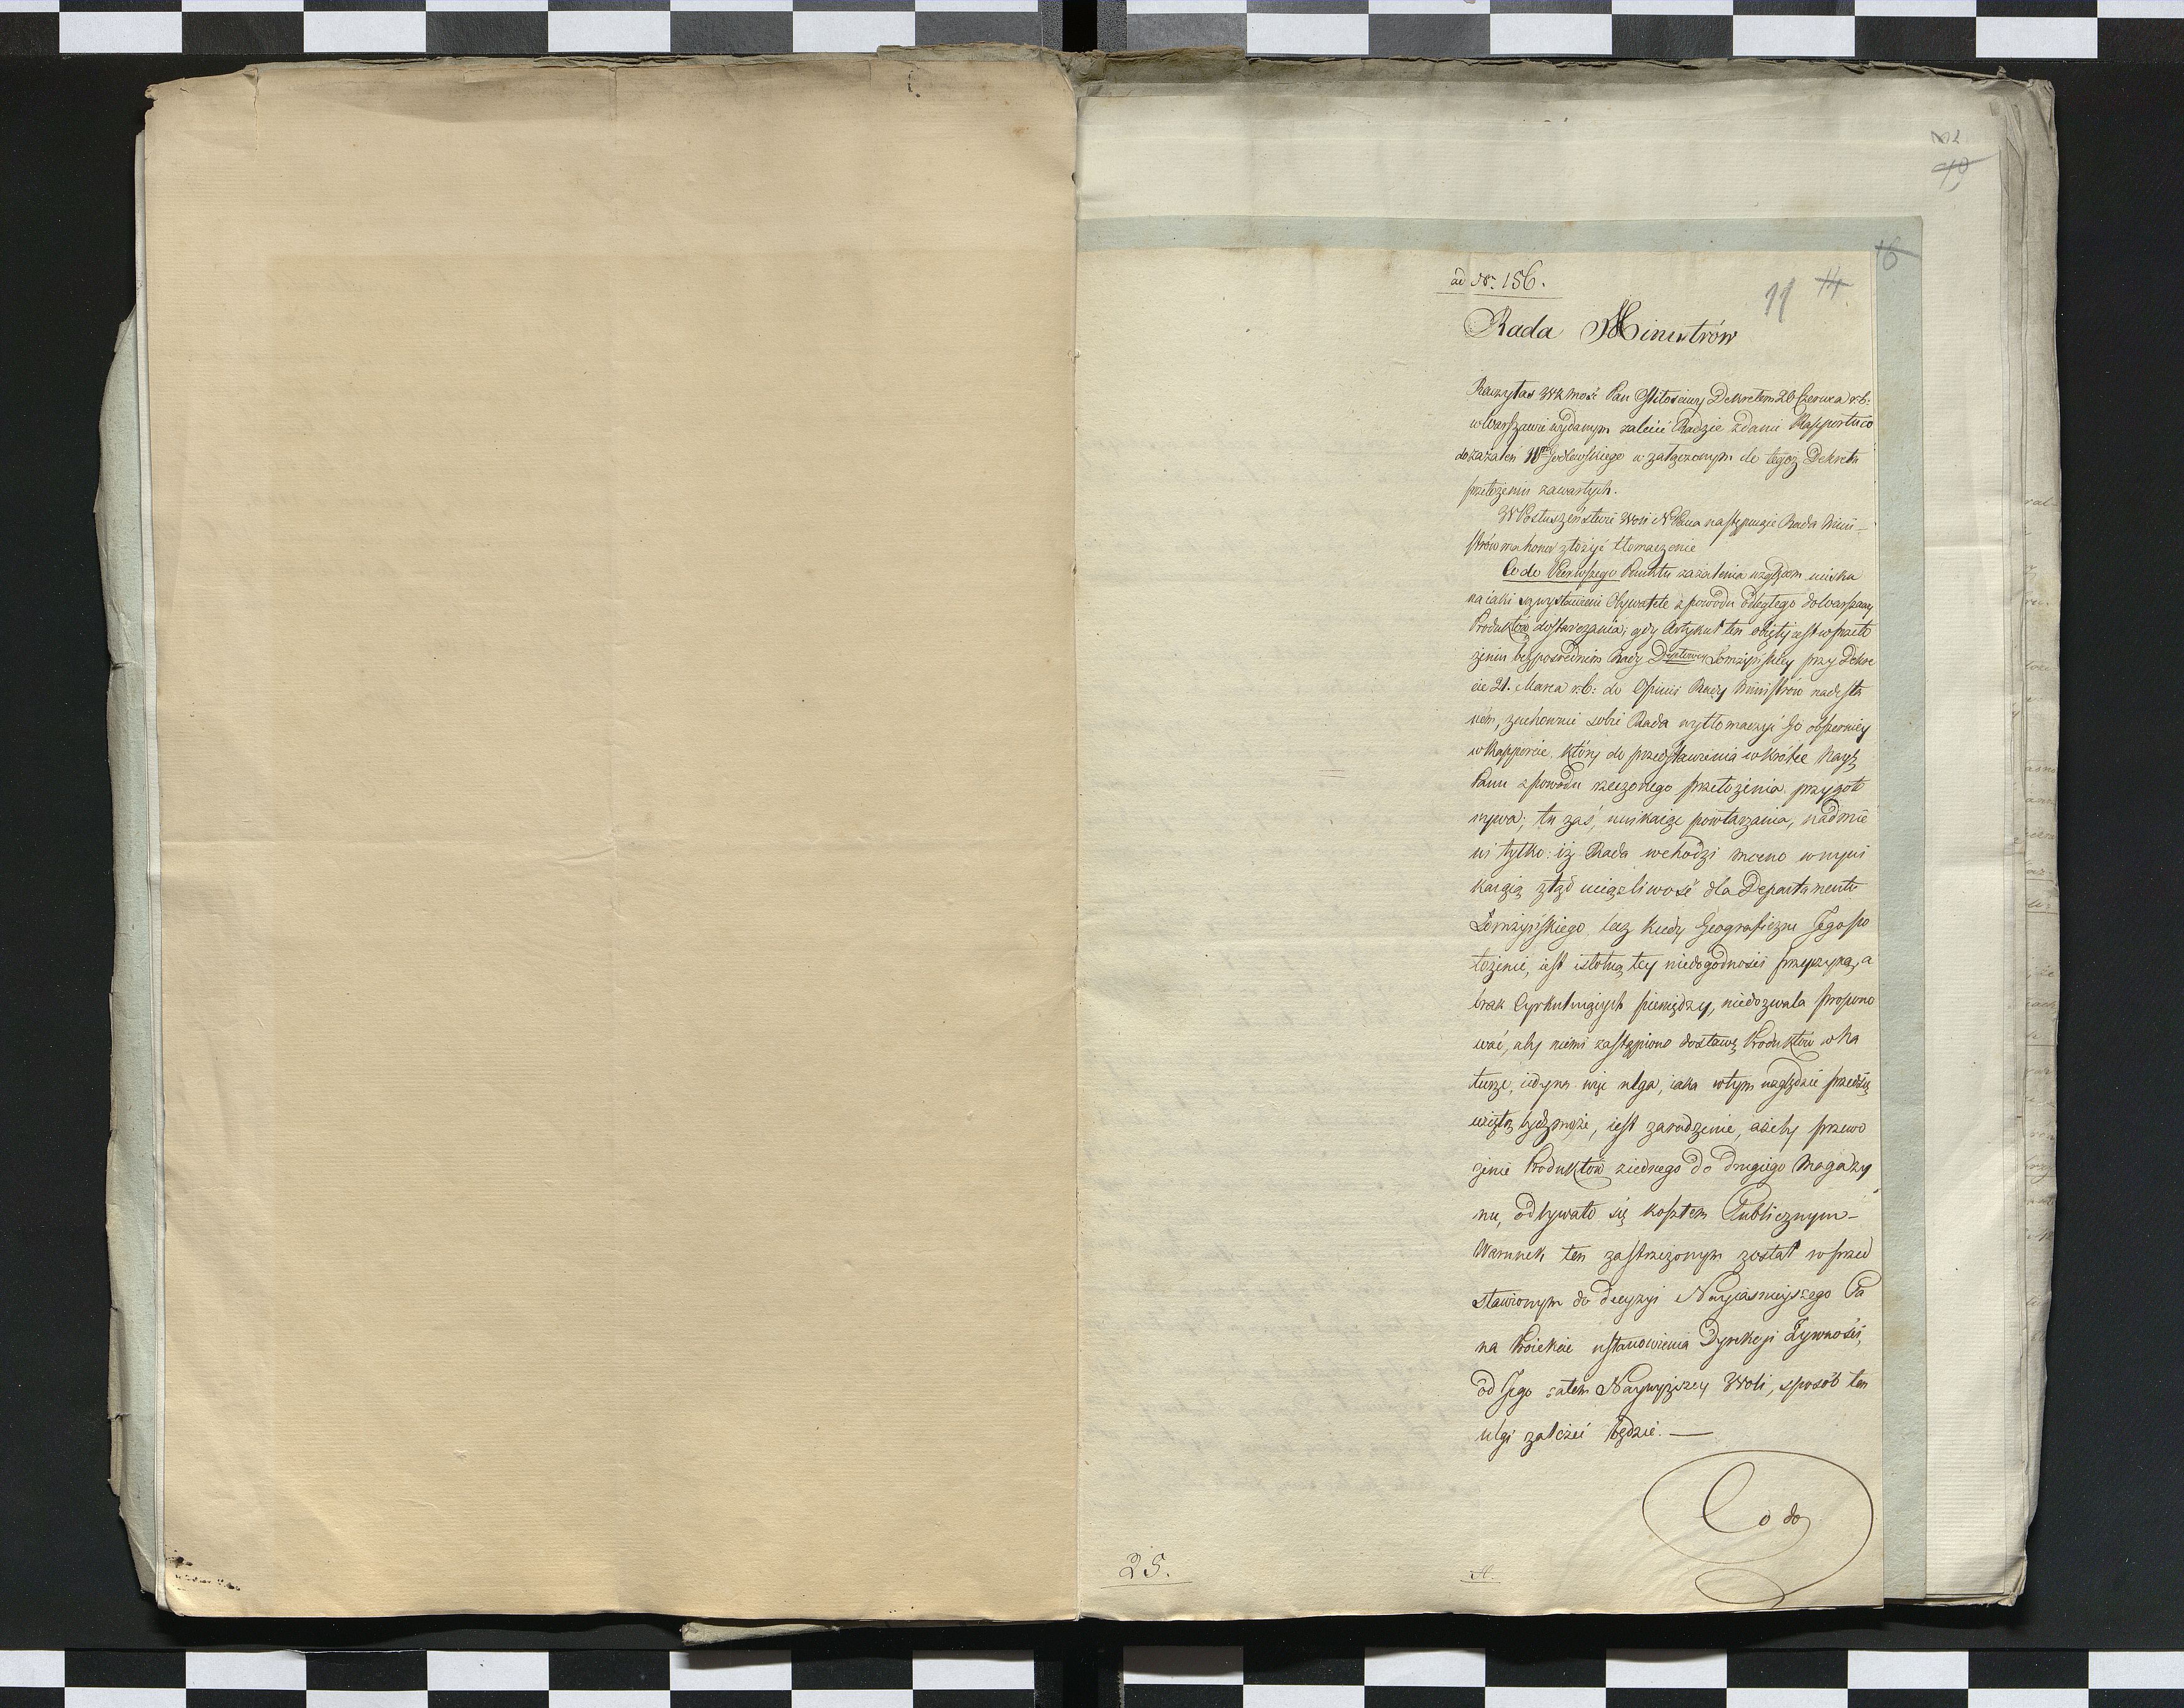 102
19
16
ad Nr. 156.
11 14
Rada Ministrów
Raczyłaś WKMość Pan Miłościwy Dekretem 20 Czerwca r. b:
w Warszawie wydanym zalecić Radzie zdanie Rapportu co
do zażaleń Godlewskiego w załączonym do tegoż Dekretu
przełożeniu zawartych.
W Posłuszeństwie Woli NPana następuiące Rada Mini-
strów ma honor złożyć tłomaczenie
Co do Pierwszego Punktu zażalenia względem ucisku
na iaki są wystawieni Obywatele z powodu odległego do Warszawy
Produktów dostarczania; gdy Artykuł ten obięty iest w przeło
żeniu bezpośrednim Rady Łomżyńskiey przy Dekre
cie 21. Marca r. b: do Opinii Rady Ministrów nadesła
ném, zachowuie sobie Rada wytłomaczyć go obszerniey
w Rapporcie, który do przedstawienia wkrótce Nayś
Panu z powodu rzeczonego przełożenia przygot
wywa; tu zaś, unikaiąc powtarzania, nadmie
ni tylko: iż Rada wchodzi mocno w wyni
kaiącą ztąd uciążliwość dla Departamentu
Łomżyńskiego, lecz kiedy Geograficzne Jego po
łożenie, iest istotną tey niedogodności przyczyną, a
brak Cyrkuluiących pieniędzy, niedozwala propono
wać, aby niemi zastąpiono dostawę Produktów w Na
turze, iedyną więc ulgą, iaka w tym względzie przedsię
wziętą bydź może, iest zaradzenie, ażeby przewo
żenie Produktów z iednego do drugiego Magazy
nu, odbywało się kosztem Publicznym -
Warunek ten zastrzeżonym został w przed
stawionym do decyzyi Nayiaśnieyszego Pa
na Proiekcie ustanowienia Dyrekcyi Żywności,
od Jego zatem Naywyższey Woli, sposób ten
ulgi zależeć będzie. —
Co do
25.